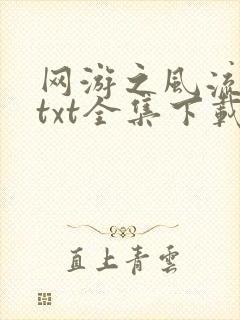 网游之风流
txt全集下载
直上青雲